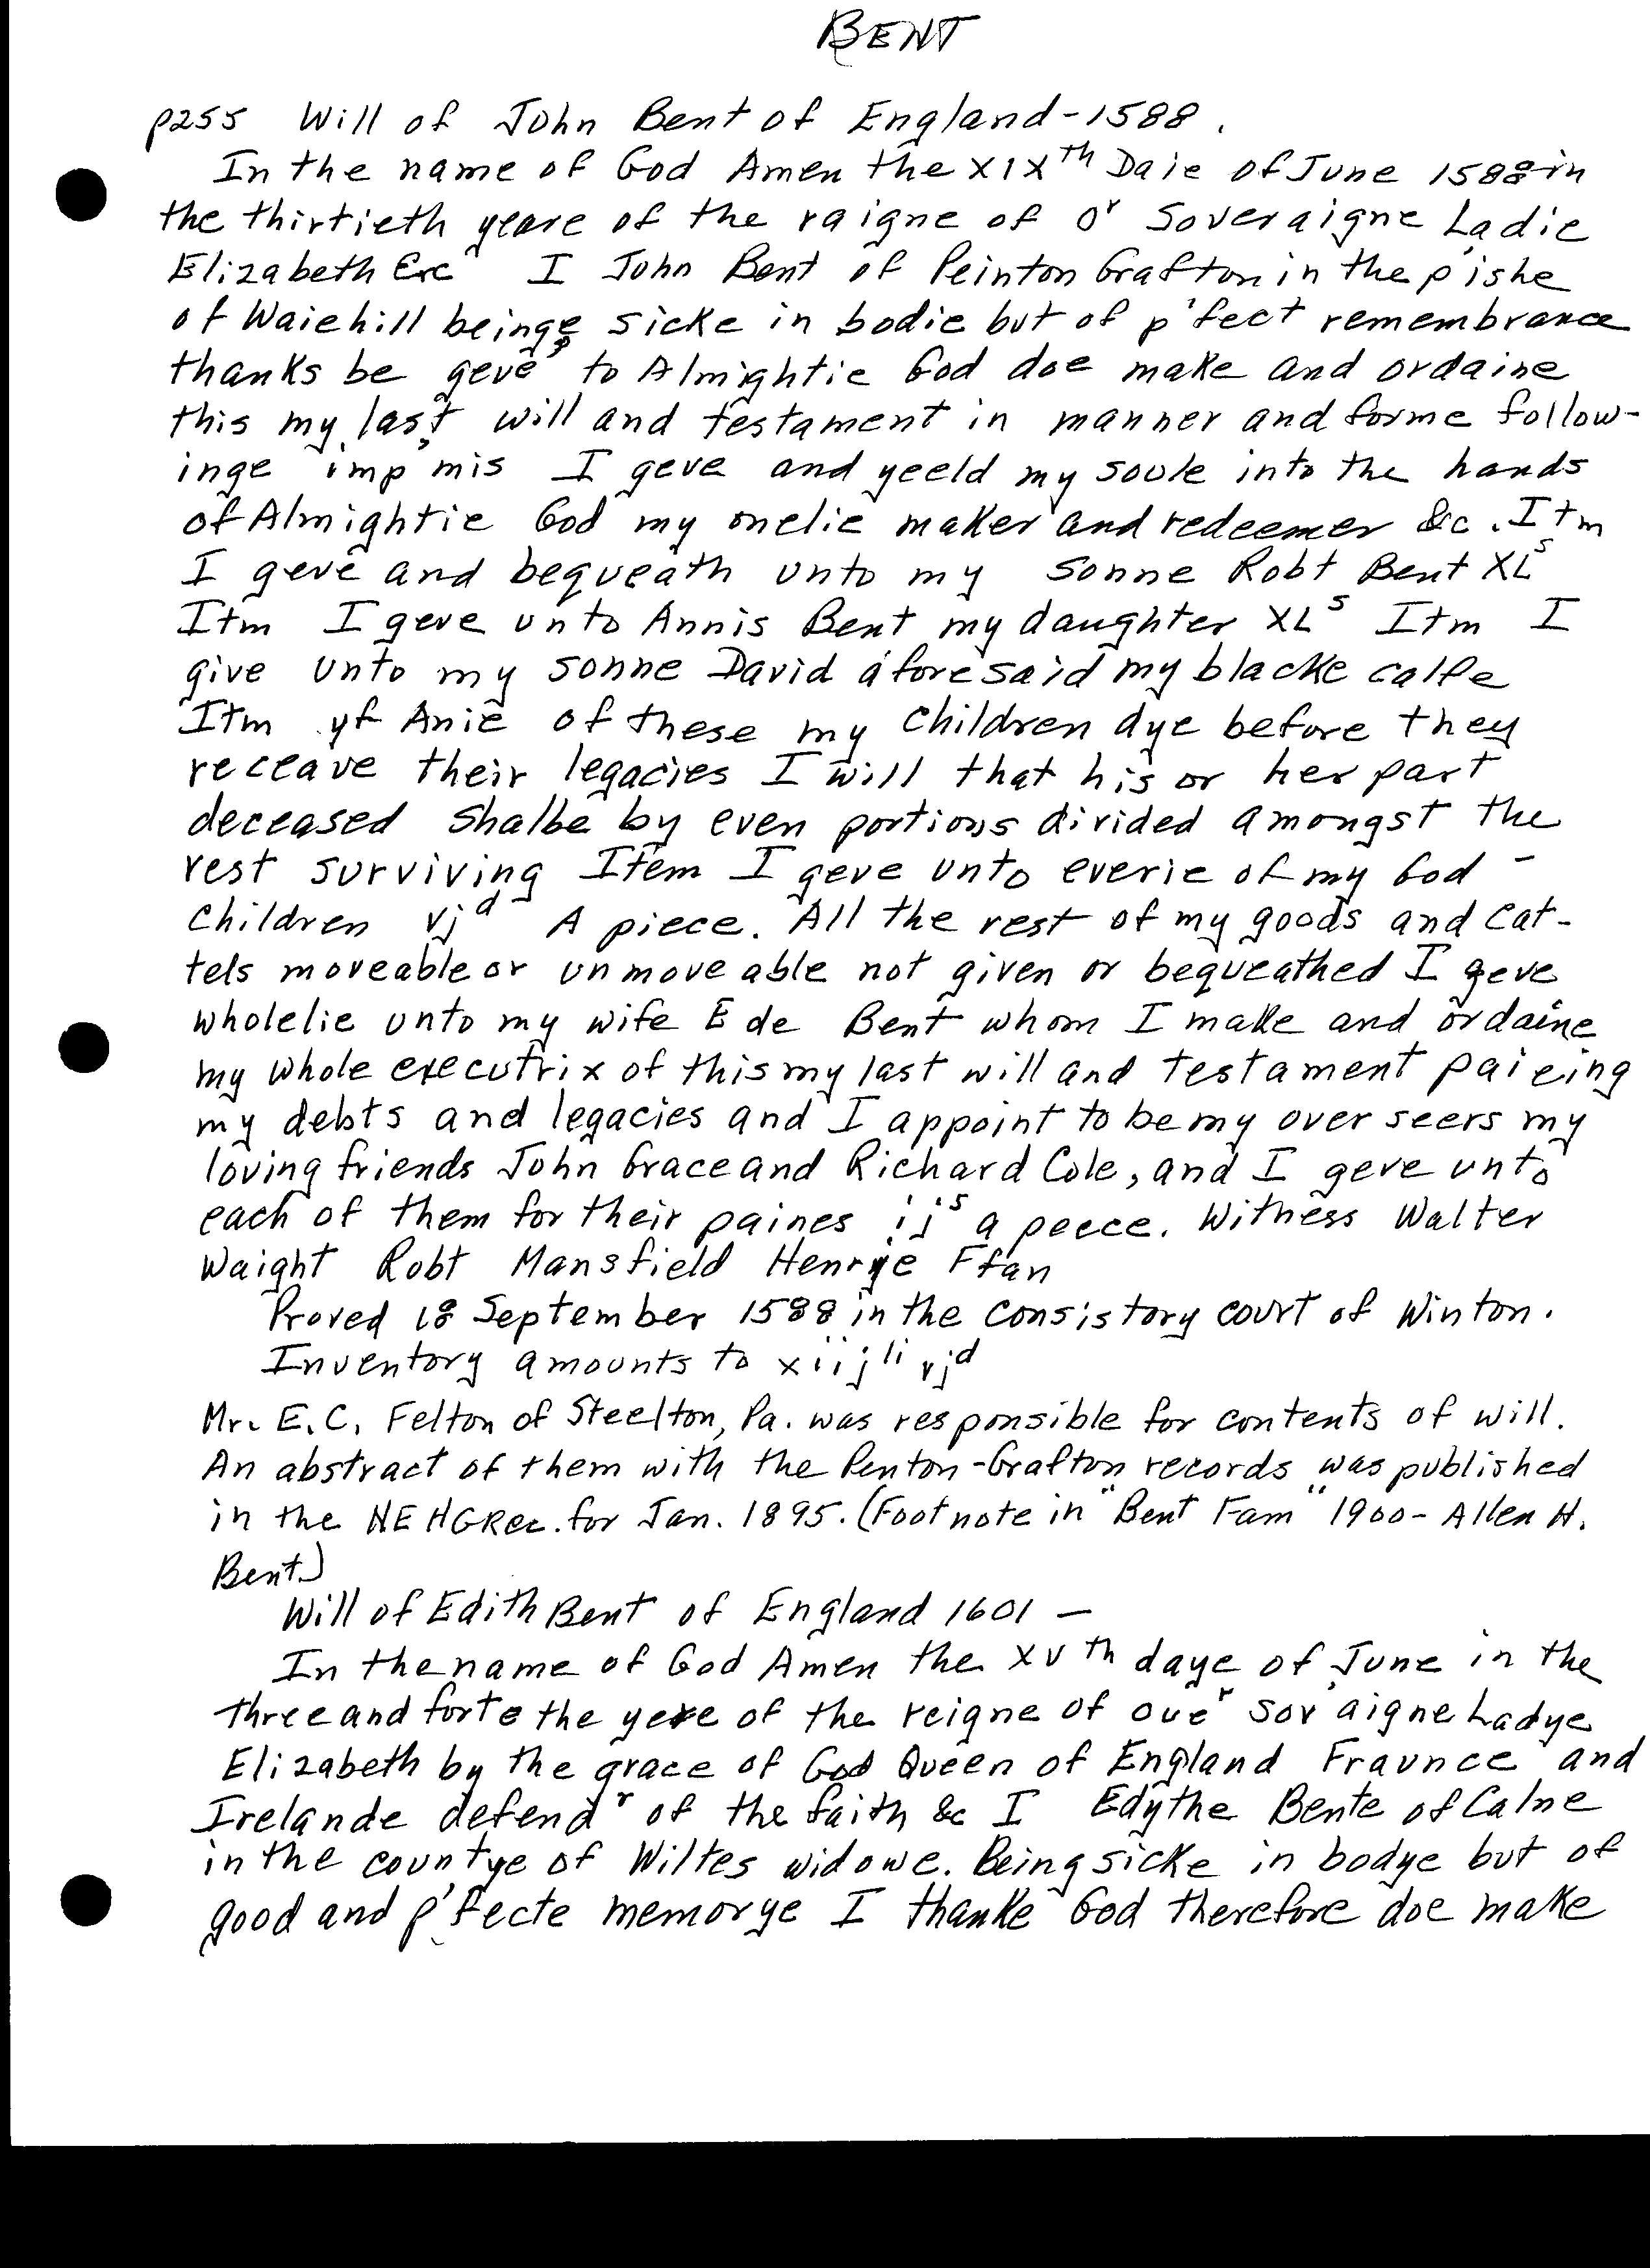 BENT
p255 Will of John Bent of England-1588.
In the name of God Amen the XIXth Daie of June 1588 in
the thirtieth yeare of the raigne of or Soveraigne Ladie
Elizabeth &c I John Bent of Peinton Grafton in the p'ishe
of Waiehill beinge sicke in bodie but of p'fect remembrance
thanks be geve' to Almightie God doe make and ordaine
this my last will and testament in manner and forme follow-
inge imp'mis I geve and yeeld my soule into the hands
of Almightie God my onelie maker and redeemer &c. Itm
I geve and bequeath unto my sonne Robt Bent XLs
Itm I geve unto Annis Bent my daughter XLs Itm I
give unto my sonne David aforesaid my blacke calfe
Itm yf Anie of these my children dye before they
receave their legacies I will that his or her part
deceased shalbe by even portions divided amongst the
rest surviving Item I geve unto everie of my God-
children vjd A piece. All the rest of my goods and cat-
tels moveable or unmoveable not given or bequeathed I geve
wholelie unto my wife Ede Bent whom I make and ordaine
my whole executrix of this my last will and testament paieing
my debts and legacies and I appoint to be my over seers my
loving friends John Grace and Richard Cole, and I geve unto
each of them for their paines ijs a peece. Witness Walter
Waight Robt Mansfield Henrye Ffan
Proved 18 September 1588 in the consistory court of Winton.
Inventory amounts to xiijli vjd
Mr. E. C. Felton of Steelton, Pa. was responsible for contents of will.
An abstract of them with the Penton-Grafton records was published
in the NEHGRec. for Jan. 1895. (Footnote in "Bent Fam" 1900- Allen H.
Bent)
Will of Edith Bent of England 1601 —
In the name of God Amen the XVth daye of June in the
three and forte the yere of the reigne of ouer sov'aigne Ladye
Elizabeth by the grace of God Queen of England Fraunce and
Irelande defendr of the faith &c I Edythe Bente of Calne
in the countye of Wiltes widowe. Being sicke in bodye but of
good and p'fecte memorye I thanke God therefore doe make